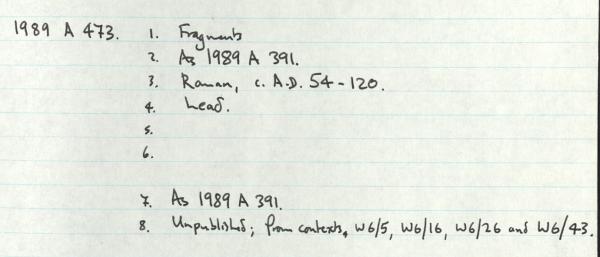 1989 A 473. 1. Fragments
2. As 1989 A 391.
3. Roman, c. A.D. 54-120.
4. Lead.
5.
6.
7. As 1989 A 391.
8. Unpublished; from contexts, W6/5, W6/16, W6/26 and W6/43.